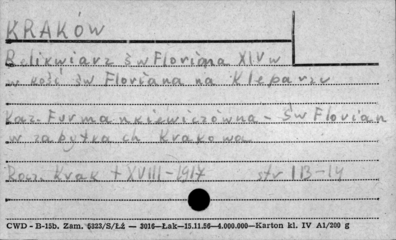 KRAKÓW
Relikwiarz św Floriana XIV w
w kość św Floriana na Kleparzu
Kaz. Furmankiewiczówna - Św Florian
w zabytkach Krakowa
Rocz. Krak t XVIII - 1917 str 113-14
CWD - B-15b. Zam. 5323/S/Łź — 3016—Łak—15.11.56—4.000.000—Karton kl. IV A1/200 g